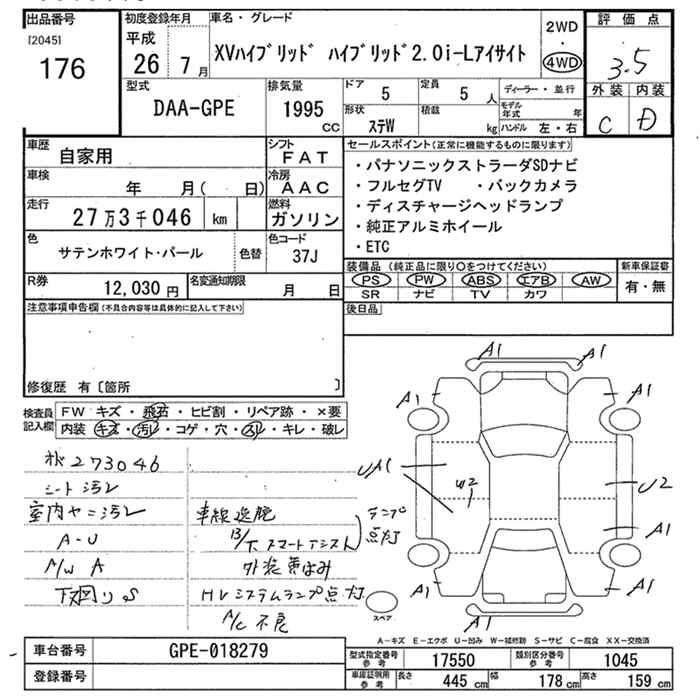 出品番号
[2045]
176
初度登録年月
平成
26 7月
車名・グレード
XVハイブリッド ハイブリッド2.0i-Lアイサイト
2WD
・
4WD
評価点
3.5
外装 内装
C D
型式
DAA-GPE
排気量
1995
cc
ドア
5
定員
5人
形状
ステW
積載
kg
ディーラー・並行
モデル年式 年
ハンドル 左・右
車歴
自家用
シフト
FAT
車検
年 月( 日)
冷房
AAC
走行
27万3千046 km
燃料
ガソリン
色
サテンホワイト・パール
色替
色コード
37J
R券
12,030円
名変通知期限
月 日
セールスポイント(正常に機能するものに限ります)
・パナソニックストラーダSDナビ
・フルセグTV ・バックカメラ
・ディスチャージヘッドランプ
・純正アルミホイール
・ETC
装備品(純正品に限り○をつけてください)
PS PW ABS エアB AW
SR ナビ TV カワ
新車保証書
有・無
後日品
注意事項申告欄(不具合内容等は具体的に記入して下さい)
修復歴 有〔箇所 〕
検査員記入欄
FW キズ・飛石・ヒビ割・リペア跡・×要
内装 キズ・汚レ・コゲ・穴・スレ・キレ・破レ
273046
シート汚レ
室内ヤニ汚レ
A-U
A/W A
下回りS
車線逸脱
スマートアシスト
ランプ点灯
外装黄ばみ
HVシステムランプ点灯
A/C不良
A1 A1
A1 A1
UA1
W2
U2
A1
A1 A1
A1
スペア
A-キズ E-エクボ U-凹み W-補修跡 S-サビ C-腐食 XX-交換済
車台番号
GPE-018279
登録番号
型式指定番号
参考
17550
類別区分番号
参考
1045
車庫証明用
参考
長さ
445cm
幅
178cm
高さ
159cm